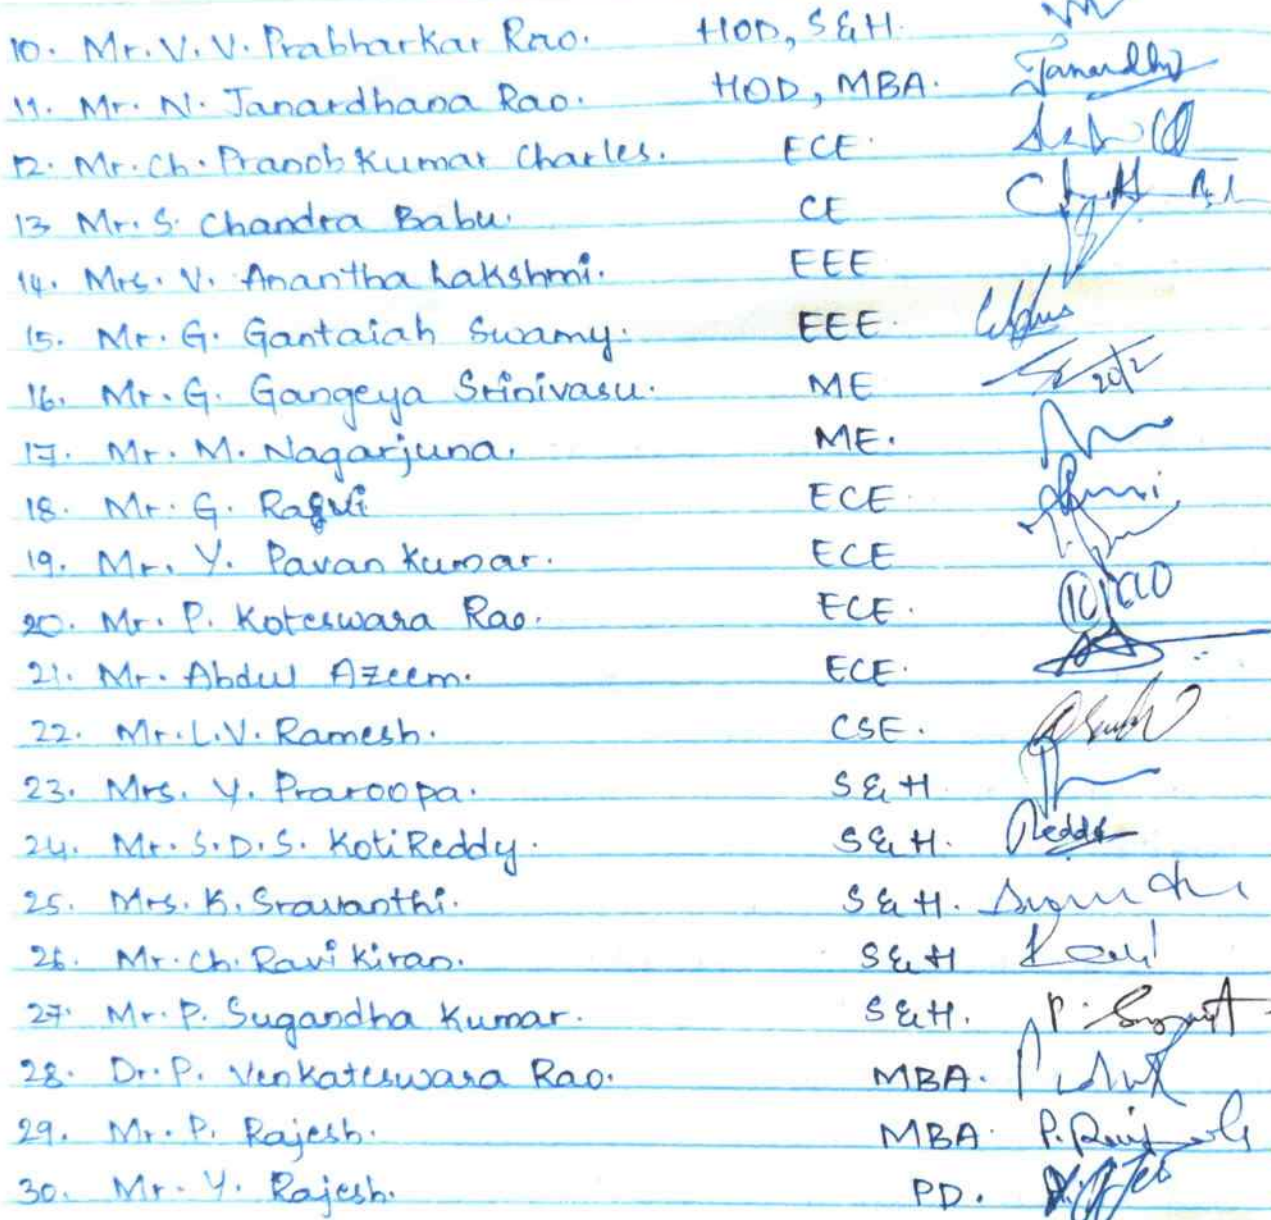 10. Mr. V. V. Prabharkar Rao. HOD, S&H.
11. Mr. N. Janardhana Rao. HOD, MBA. Janardhn
12. Mr. Ch. Pranob Kumar Charles. ECE.
13 Mr. S. Chandra Babu. CE
14. Mrs. V. Anantha Lakshmi. EEE
15. Mr. G. Gantaiah Swamy. EEE.
16. Mr. G. Gangeya Srinivasu. ME 20/2
17. Mr. M. Nagarjuna. ME.
18. Mr. G. ECE
19. Mr. Y. Pavan Kumar. ECE
20. Mr. P. Koteswara Rao. ECE.
21. Mr. Abdul Azeem. ECE.
22. Mr. L.V. Ramesh. CSE.
23. Mrs. Y. Praroopa. S&H
24. Mr. S.D.S. KotiReddy. S&H. Reddy
25. Mrs. K. Sravanthi. S&H.
26. Mr. Ch. Ravi Kiran. S&H
27. Mr. P. Sugandha Kumar. S&H.
28. Dr. P. Venkateswara Rao. MBA.
29. Mr. P. Rajesh. MBA.
30. Mr. Y. Rajesh. PD.